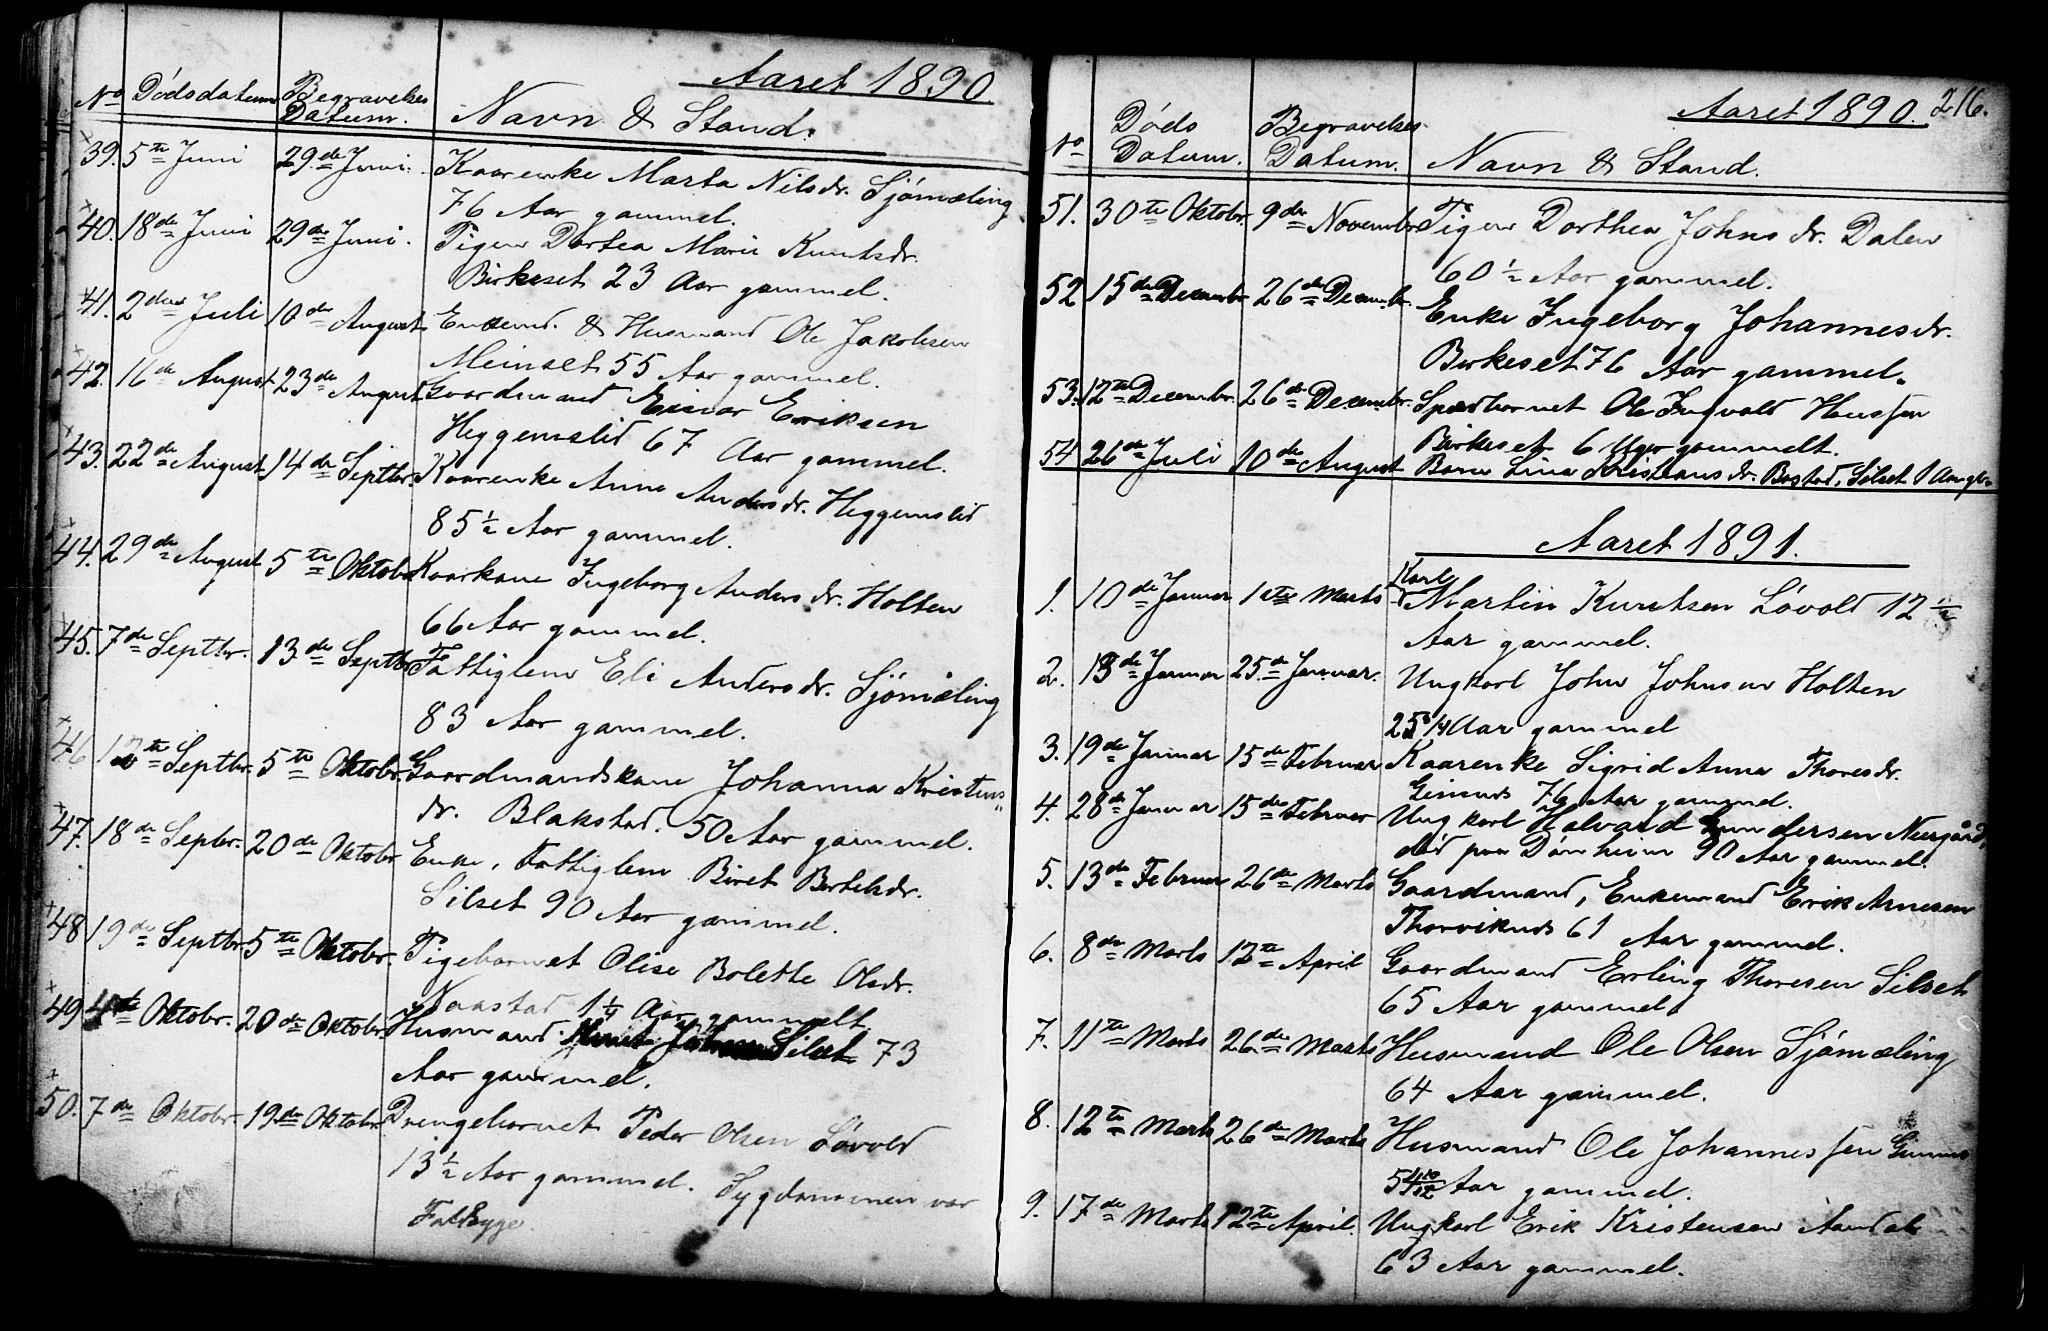 Aaret 1890.
No Dödsdatum Begravelses Datum. Navn & Stand.
39. 5te Juni 29de Juni. Kaarenke Marta Nilsdr. Sjömæling
76 Aar gammel.
40. 18de Juni 29de Juni. Pigen Dortea Marie Knutsdr.
Birkeset 23 Aar gammel.
41. 2den Juli 10de August Enkemd. & Husmand Ole Jakobsen
Meinset 55 Aar gammel.
42. 16de August 23de August Gaardmand Einar Eriksen
Heggemslid 67 Aar gammel.
43. 22de August 14de Septbr. Kaarenke Anne Andersdr. Heggemslid
85 1/2 Aar gammel.
44. 29de August 5te Oktobr. Kaarkone Ingeborg Andersdr. Holten
66 Aar gammel.
45. 7de Septbr. 13de Septbr. Fattiglem Eli Andersdr. Sjömæling
83 Aar gammel.
46 12te Septbr. 5te Oktobr. Gaardmandskone Johanna Kristens"
dr. Blakstad. 50 Aar gammel.
47. 18de Septbr. 20de Oktobr. Enke, Fattiglem Beret Bertelsdr.
Silset 90 Aar gammel.
48 19de Septbr. 5te Oktobr. Pigebarnet Olise Bolette Olsdr.
Naastad 1 1/4 Aar gammelt.
49 4de Oktobr. 20de Oktobr. Husmand Silset 73
Aar gammel.
50. 7de Oktobr. 19de Oktobr. Drengebarnet Peder Olsen Lövold
13 1/2 Aar gammel. Sygdommen var
Faldsyge.
Aaret 1890. 216.
No Döds Datum. Begravelses Datum. Navn & Stand.
51. 30te Oktobr. 9de Novembr. Pigen Dorthea Johnsdr. Dalen
60 1/2 Aar gammel.
52 15de Decembr. 26de Decembr. Enke Ingeborg Johannesdr.
Birkeset 76 Aar gammel.
53. 12te Decembr. 26de Decembr. Spædbarnet Ole Ingvald Hansen
Birkeset 6 Uger gammelt.
54 26de Juli 10de August Barn Lina Kristiansdr. Bostad, Silset 1 Aar gl.
Aaret 1891.
Karl
1. 10de Januar 1ste Marts Martin Knutsen Lövold 12 1/2
Aar gammel.
2. 13de Januar 25de Januar. Ungkarl John Johnsen Holten
25 3/4 Aar gammel
3. 19de Januar 15de Februar Kaarenke Sigrid Anna Thoresdr.
Gimnes 76 Aar gammel.
4. 28de Januar 15de Februar Ungkarl Halvard Gundersen Neergård,
död paa Dönheim 90 Aar gammel.
5. 13de Februar 26de Marts Gaardmand, Enkemand Erik Arnesen
Thorviknes 61 Aar gammel.
6. 8de Marts 12te April Gaardmand Erling Thoresen Silset
65 Aar gammel
7. 11te Marts 26de Marts Husmand Ole Olsen Sjömæling
64 Aar gammel.
8. 12te Marts 26de Marts Husmand Ole Johannessen Gimnes
54 10/12 Aar gammel.
9. 17de Marts 12te April. Ungkarl Erik Kristensen Aandal
63 Aar gammel.